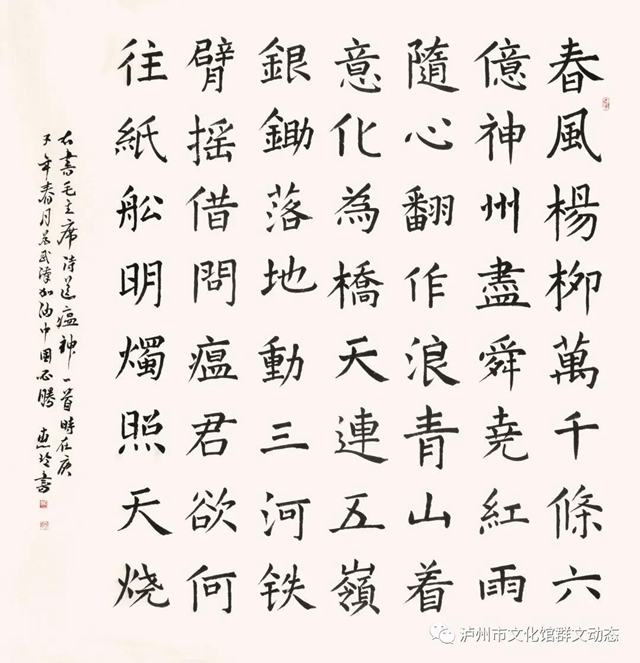 春風楊柳萬千條六
億神州盡舜堯紅雨
隨心翻作浪青山着
意化為橋天連五嶺
銀鋤落地動三河铁
臂摇借問瘟君欲何
往紙舩明燭照天烧
右書毛主席诗送瘟神一首時在庚
子年春月為武漢加油中国必勝 惠玲書
泸州市文化馆群文动态